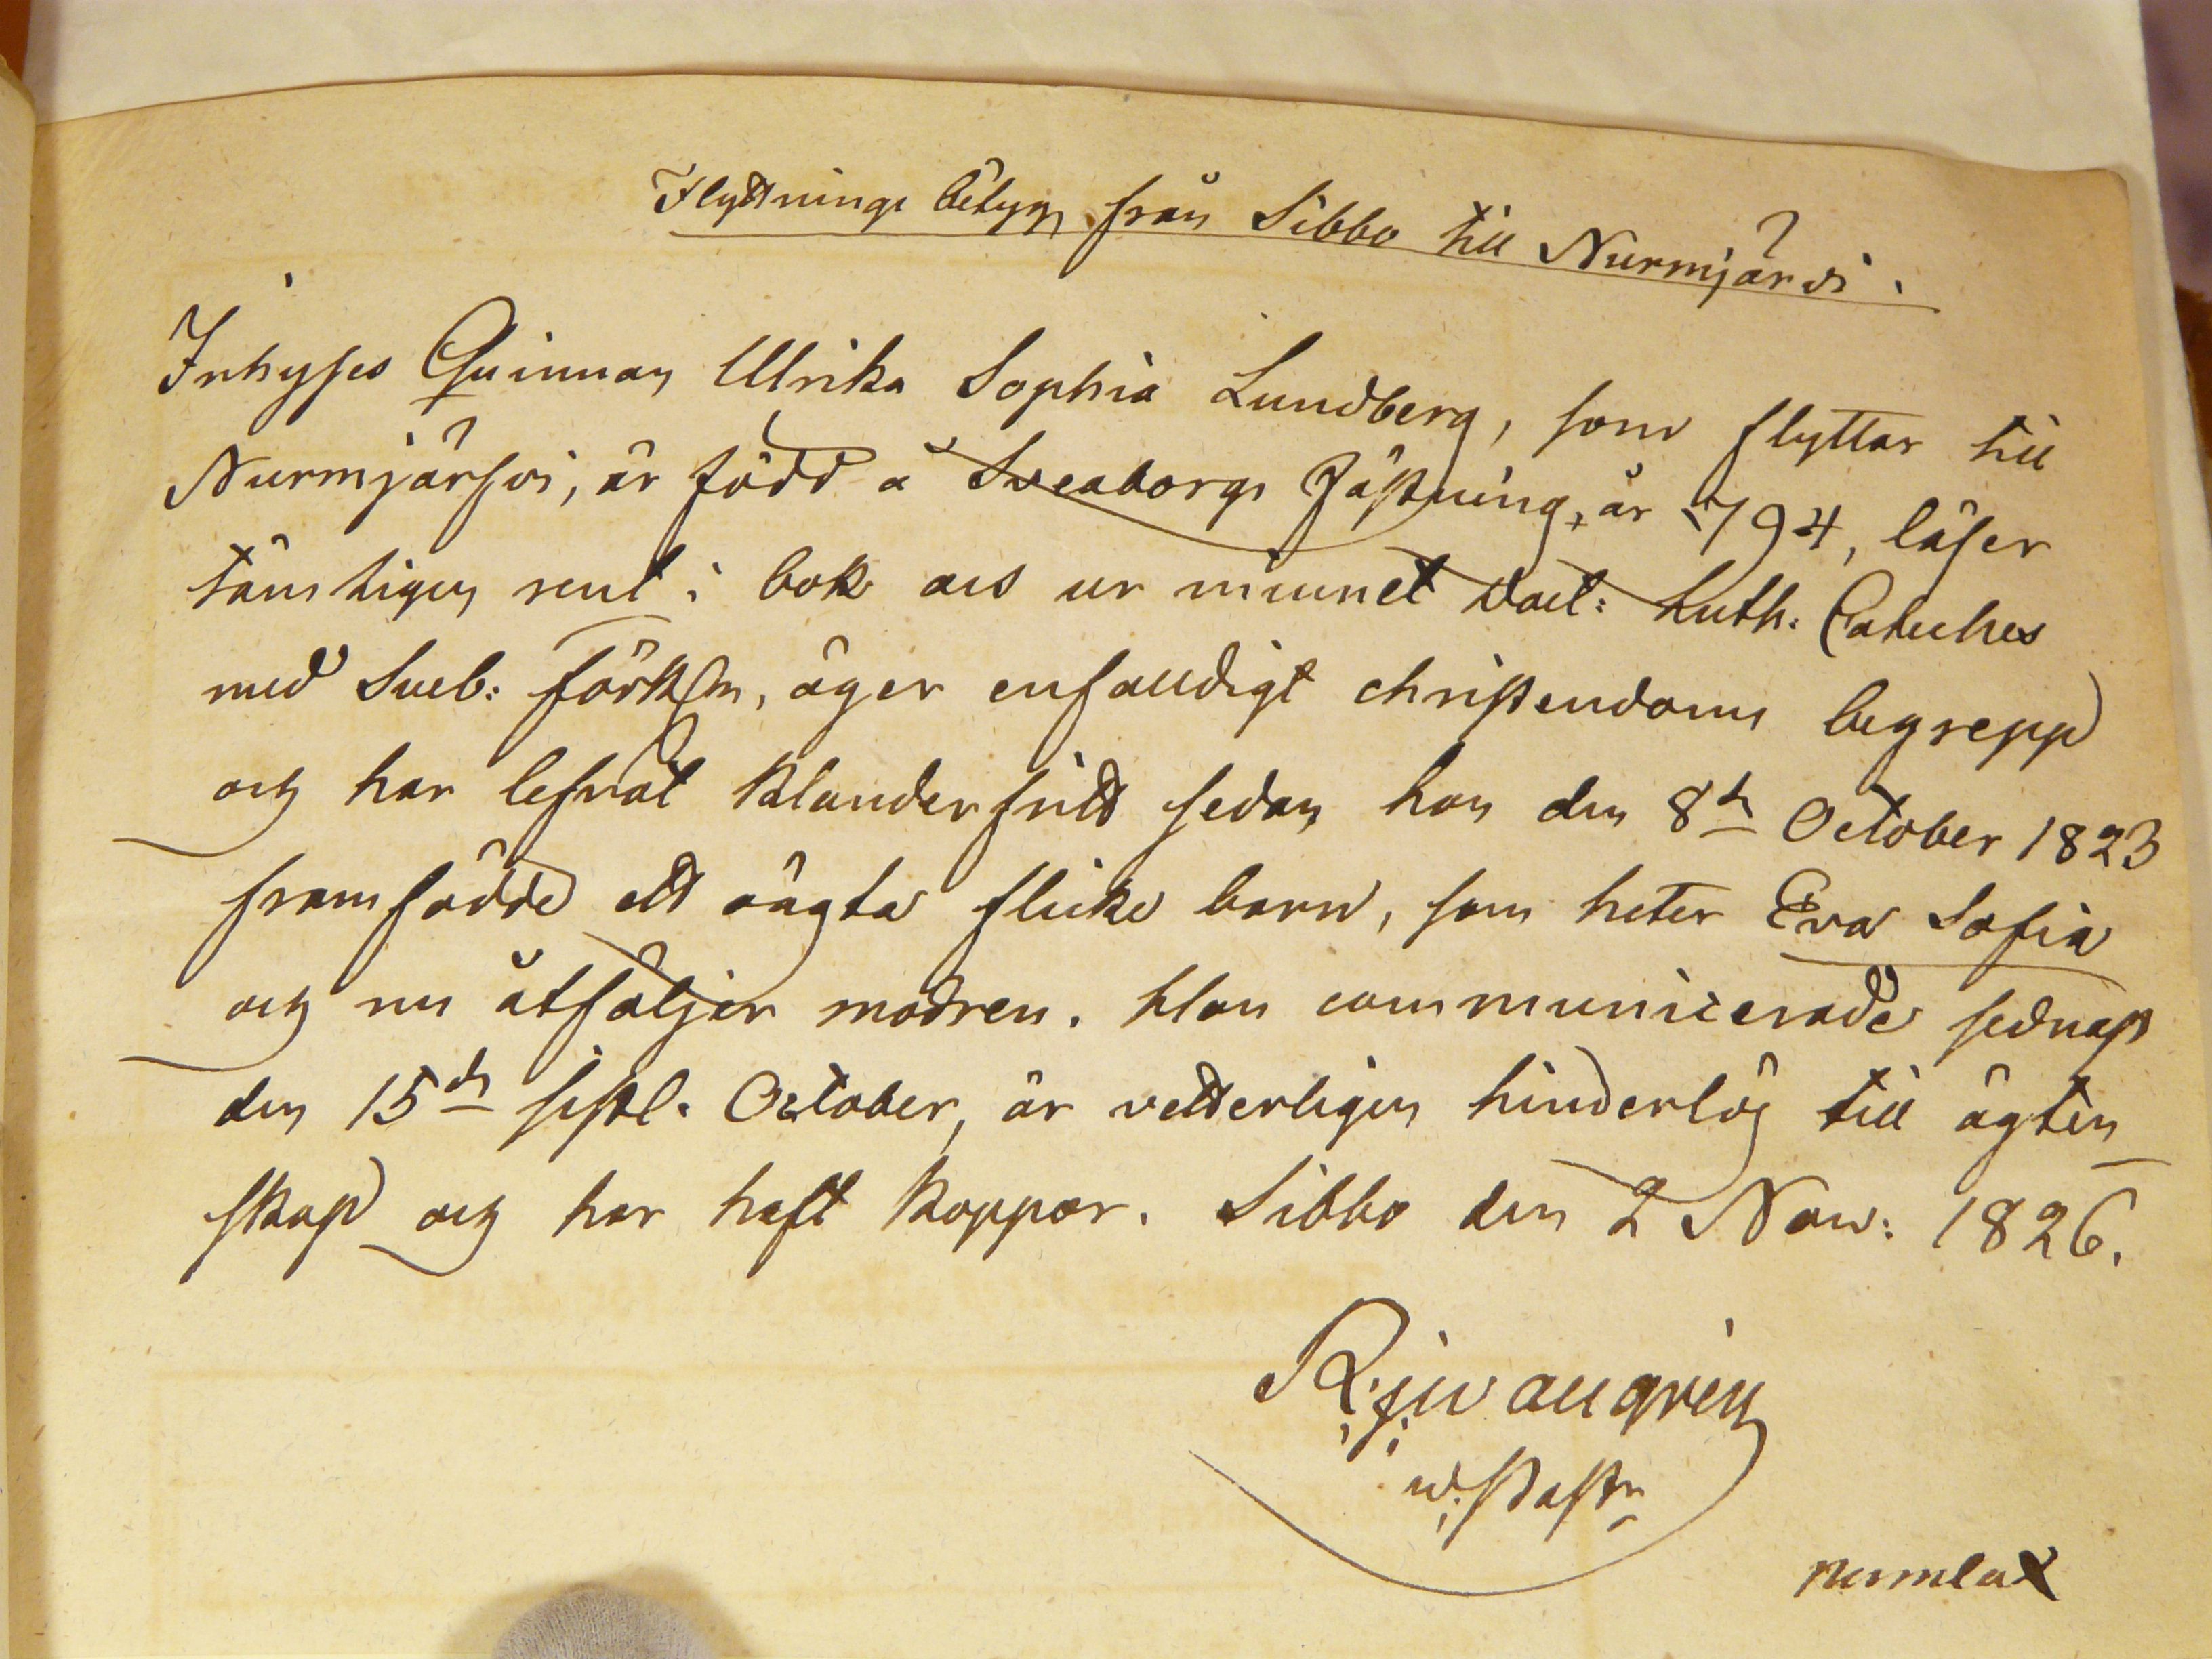 Flyttnings betyg från Sibbo till Nurmjärvi.
Inhyses Quinnan Ulrika Sophia Lundberg, som flyttar till
Nurmijärfvi, är född å Sveaborgs Fästning, år 1794, läser
tämligen rent i bok och ur minnet Doct: Luth: Cateches
med Sveb: förkln, äger enfaldigt christendoms begrepp
och har lefvat klanderfritt sedan hon den 8de October 1823
framfödde ett oägta flicke barn, som heter Eva Sofia
och nu åtföljer modren. Hon communicerade sednast
den 15de sistl. October, är vetterligen hinderlös till ägten
skap och har haft koppor. Sibbo den 2 Nov: 1826.
w. Past: